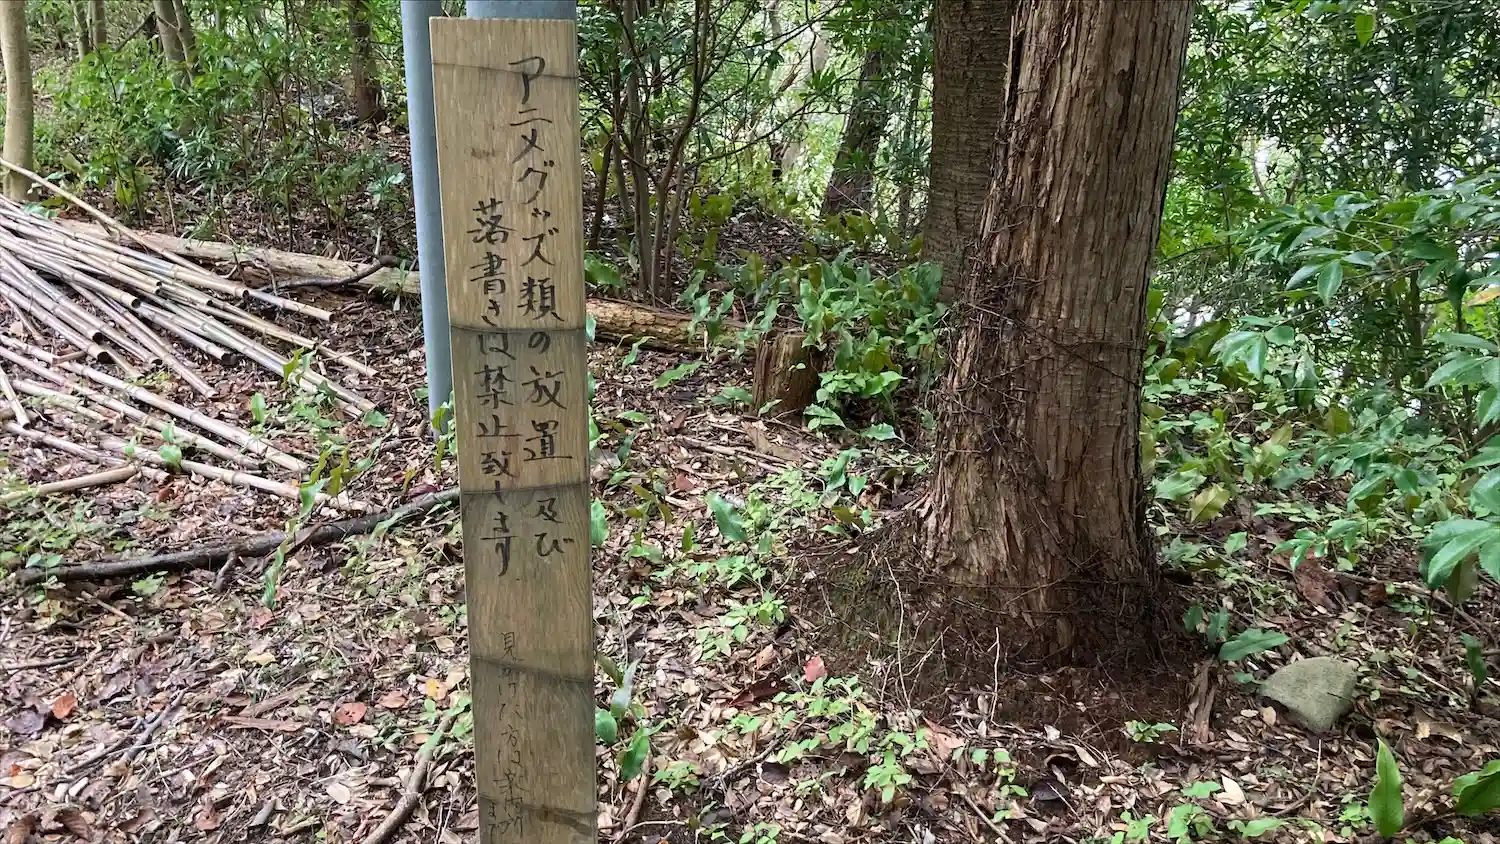 アニメグッズ類の放置及び
落書きは禁止致します
見かけた方は案内所
まで